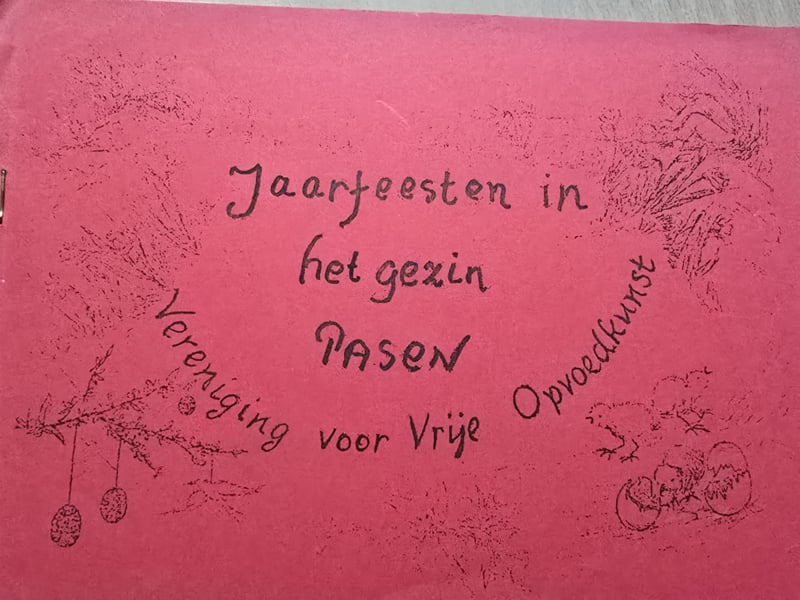 Jaarfeesten in
het gezin
PASEN
Vereniging voor Vrije Opvoedkunst